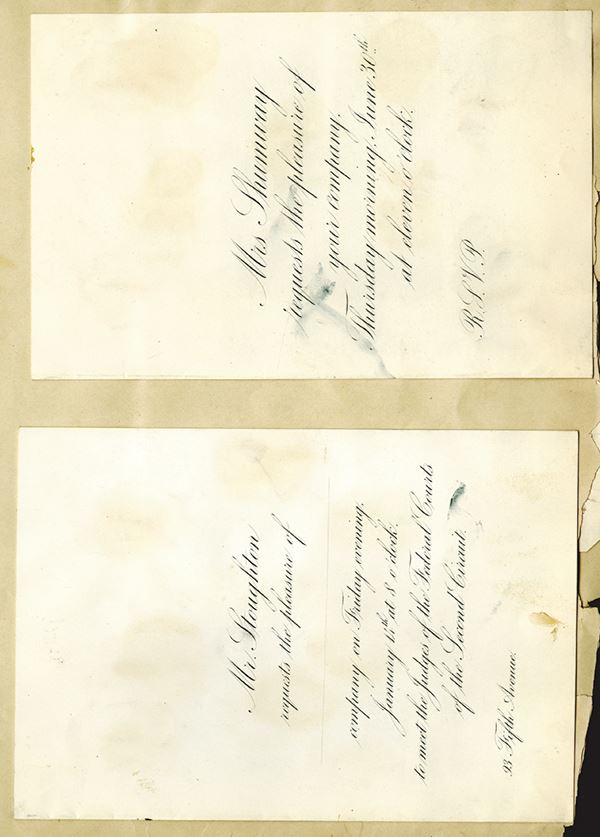 Mrs Shumway
requests the pleasure of
your company,
Thursday morning, June 30th
at eleven o'clock.
R.S.V.P.
Mr. Stoughton
requests the pleasure of
company on Friday evening,
January 15th at 8 o'clock.
to meet the Judges of the Federal Courts
of the Second Circuit.
93 Fifth Avenue.